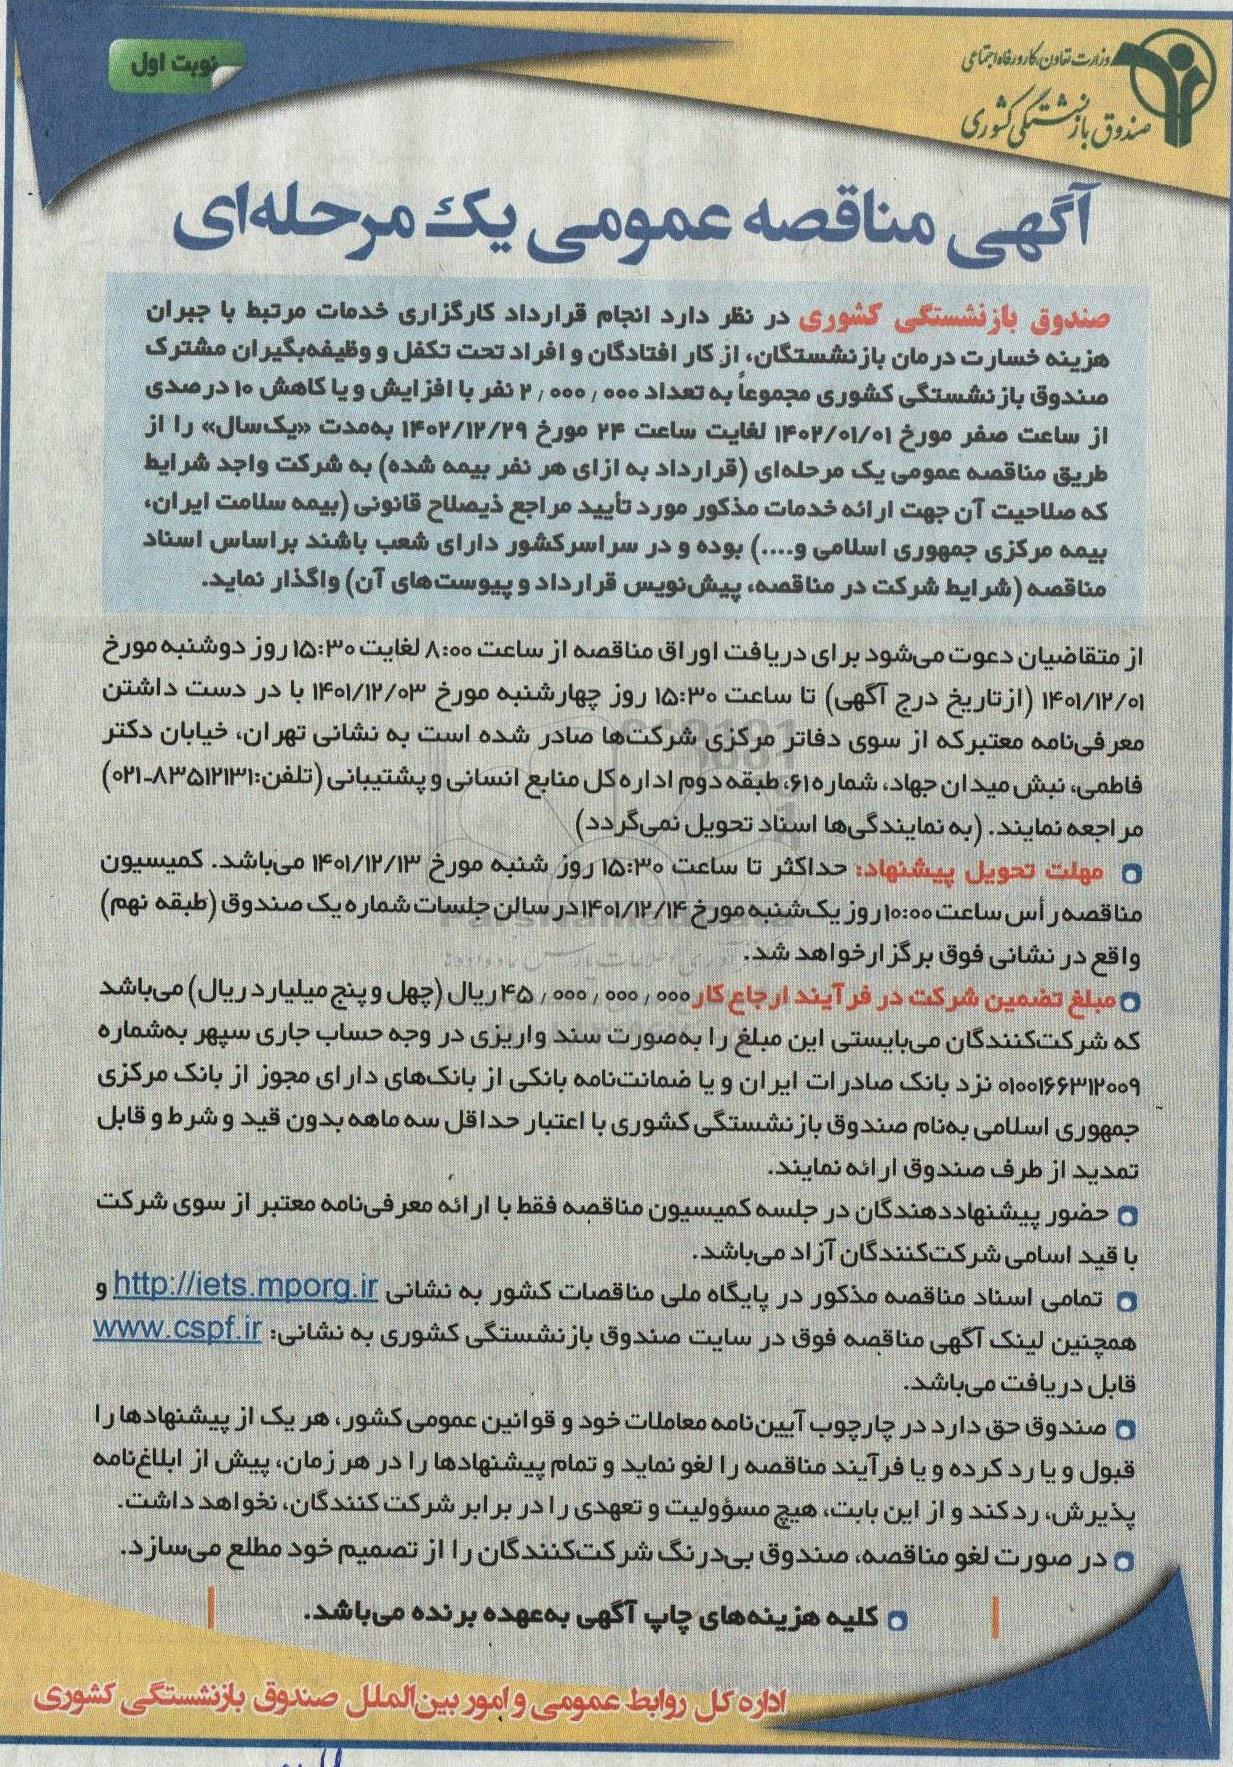 وزارت تعاون، کار و رفاه اجتماعی
صندوق بازنشستگی کشوری
نوبت اول
آگهی مناقصه عمومی یک مرحله‌ای
صندوق بازنشستگی کشوری در نظر دارد انجام قرارداد کارگزاری خدمات مرتبط با جبران
هزینه خسارت درمان بازنشستگان، از کار افتادگان و افراد تحت تکفل و وظیفه‌بگیران مشترک
صندوق بازنشستگی کشوری مجموعاً به تعداد ۲٫۰۰۰٫۰۰۰ نفر با افزایش و یا کاهش ۱۰ درصدی
از ساعت صفر مورخ ۱۴۰۲/۰۱/۰۱ لغایت ساعت ۲۴ مورخ ۱۴۰۲/۱۲/۲۹ به‌مدت «یک‌سال» را از
طریق مناقصه عمومی یک مرحله‌ای (قرارداد به ازای هر نفر بیمه شده) به شرکت واجد شرایط
که صلاحیت آن جهت ارائه خدمات مذکور مورد تأیید مراجع ذیصلاح قانونی (بیمه سلامت ایران،
بیمه مرکزی جمهوری اسلامی و....) بوده و در سراسرکشور دارای شعب باشند براساس اسناد
مناقصه (شرایط شرکت در مناقصه، پیش‌نویس قرارداد و پیوست‌های آن) واگذار نماید.
از متقاضیان دعوت می‌شود برای دریافت اوراق مناقصه از ساعت ۸:۰۰ لغایت ۱۵:۳۰ روز دوشنبه مورخ
۱۴۰۱/۱۲/۰۱ (ازتاریخ درج آگهی) تا ساعت ۱۵:۳۰ روز چهارشنبه مورخ ۱۴۰۱/۱۲/۰۳ با در دست داشتن
معرفی‌نامه معتبرکه از سوی دفاتر مرکزی شرکت‌ها صادر شده است به نشانی تهران، خیابان دکتر
فاطمی، نبش میدان جهاد، شماره۶۱، طبقه دوم اداره کل منابع انسانی و پشتیبانی (تلفن:۸۳۵۱۲۱۳۱-۰۲۱)
مراجعه نمایند. (به نمایندگی‌ها اسناد تحویل نمی‌گردد)
مهلت تحویل پیشنهاد: حداکثر تا ساعت ۱۵:۳۰ روز شنبه مورخ ۱۴۰۱/۱۲/۱۳ می‌باشد. کمیسیون
مناقصه رأس ساعت ۱۰:۰۰ روز یک‌شنبه مورخ ۱۴۰۱/۱۲/۱۴ در سالن جلسات شماره یک صندوق (طبقه نهم)
واقع در نشانی فوق برگزارخواهد شد.
مبلغ تضمین شرکت در فرآیند ارجاع کار ۴۵٫۰۰۰٫۰۰۰٫۰۰۰ ریال (چهل و پنج میلیارد ریال) می‌باشد
که شرکت‌کنندگان می‌بایستی این مبلغ را به‌صورت سند واریزی در وجه حساب جاری سپهر به‌شماره
۰۱۰۰۱۶۶۳۱۲۰۰۹ نزد بانک صادرات ایران و یا ضمانت‌نامه بانکی از بانک‌های دارای مجوز از بانک مرکزی
جمهوری اسلامی به‌نام صندوق بازنشستگی کشوری با اعتبار حداقل سه ماهه بدون قید و شرط و قابل
تمدید از طرف صندوق ارائه نمایند.
حضور پیشنهاددهندگان در جلسه کمیسیون مناقصه فقط با ارائه معرفی‌نامه معتبر از سوی شرکت
با قید اسامی شرکت‌کنندگان آزاد می‌باشد.
تمامی اسناد مناقصه مذکور در پایگاه ملی مناقصات کشور به نشانی http://iets.mporg.ir و
همچنین لینک آگهی مناقصه فوق در سایت صندوق بازنشستگی کشوری به نشانی: www.cspf.ir
قابل دریافت می‌باشد.
صندوق حق دارد در چارچوب آیین‌نامه معاملات خود و قوانین عمومی کشور، هر یک از پیشنهادها را
قبول و یا رد کرده و یا فرآیند مناقصه را لغو نماید و تمام پیشنهادها را در هر زمان، پیش از ابلاغ‌نامه
پذیرش، رد کند و از این بابت، هیچ مسؤولیت و تعهدی را در برابر شرکت کنندگان، نخواهد داشت.
در صورت لغو مناقصه، صندوق بی‌درنگ شرکت‌کنندگان را از تصمیم خود مطلع می‌سازد.
کلیه هزینه‌های چاپ آگهی به‌عهده برنده می‌باشد.
اداره کل روابط عمومی و امور بین‌الملل صندوق بازنشستگی کشوری